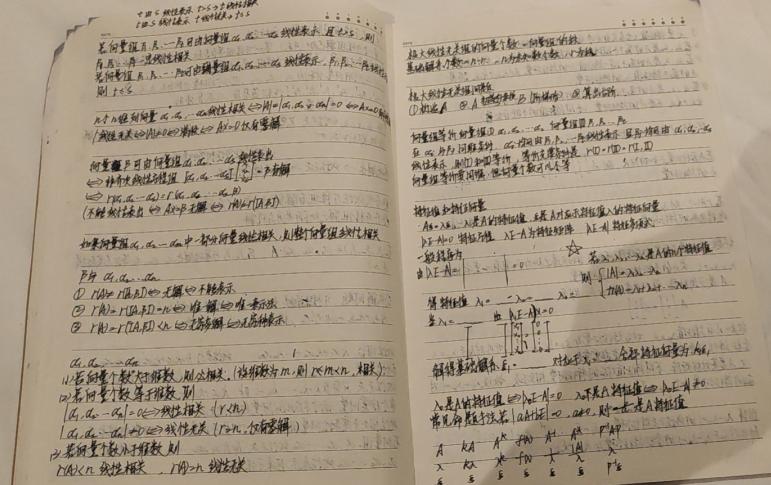 t由S线性表示 t>s→t线性相关
t由S线性表示 t线性无关→t≤s
若向量组β₁β₂…βt可由向量组α₁,α₂…αs线性表示,且t>s,则
β₁,β₂…βt线性相关
若向量组β₁β₂…βt可由向量组α₁,α₂…αs线性表示,β₁,β₂…βt线性无关
则t≤s
n个n维列向量α₁,α₂…αn线性相关⇔|A|=|α₁,α₂…αn|=0⇔Ax=0有
(线性无关⇔|A|≠0⇔满秩⇔Ax=0仅有零解
向量β可由向量组α₁,α₂…αs线性表出
⇔非齐次线性方程组[α₁,α₂…αs] =β有解
⇔r(α₁,α₂…αs)=r(α₁,α₂…αs,β)
(不能线性表出⇔Ax=β无解⇔r(A)≠r([A,β])
如果向量组α₁,α₂…αm中一部分向量线性相关,则整个向量组线性相关
β与α₁,α₂…αn
① r(A)≠r([A,β])⇔无解⇔不能表示
② r(A)=r([A,β])=n⇔唯一解⇔唯一表示法
③ r(A)=r([A,β])<n⇔无穷多解⇔无穷种表示
α₁,α₂…αn
(1)若向量个数大于维数,则必相关.(设维数为m,则r≤m<n,相关)
(2)若向量个数等于维数,则
|α₁,α₂…αn|=0⇔线性相关 (r<n)
|α₁,α₂…αn|≠0⇔线性无关 (r=n,仅有零解)
(3)若向量个数小于维数,则
r(A)<n 线性相关, r(A)=n 线性无关
极大线性无关组的向量个数=向量组的秩
极大线性无关组
①构造A ②A B ③算出台阶
向量组等价 向量组①α₁,α₂…αs 向量组②β₁,β₂…βt
线性表示,则①和②等价,
向量组等价
特征值和特征向量
Aξ=λξ,λ是A的特征值,ξ是A对应于特征值λ的特征向量
|λE-A|=0特征方程 λE-A为特征矩阵 |λE-A|特征多项式
一般程序为
由|λE-A|= =0
若λ₁,λ₂…λn是A的n个特征值
则 |A|=λ₁λ₂…λn
tr(A)=λ₁+λ₂+…+λn
得特征值λ₁= λ₂=
当λ₁= 由(λE-A)x=0
解得基础解系ξ₁ 全部特征向量为k₁ξ₁
λ₀是A的特征值⇔|λ₀E-A|=0 λ₀不是A特征值⇔|λ₀E-A|≠0
常见命题手法若|aA+bE|=0,a≠0,则-b/a是A特征值
A kA Aᵏ f(A) A⁻¹ A* P⁻¹AP
λ kλ λᵏ f(λ) 1/λ |A|/λ λ
ξ ξ ξ ξ ξ ξ P⁻¹ξ